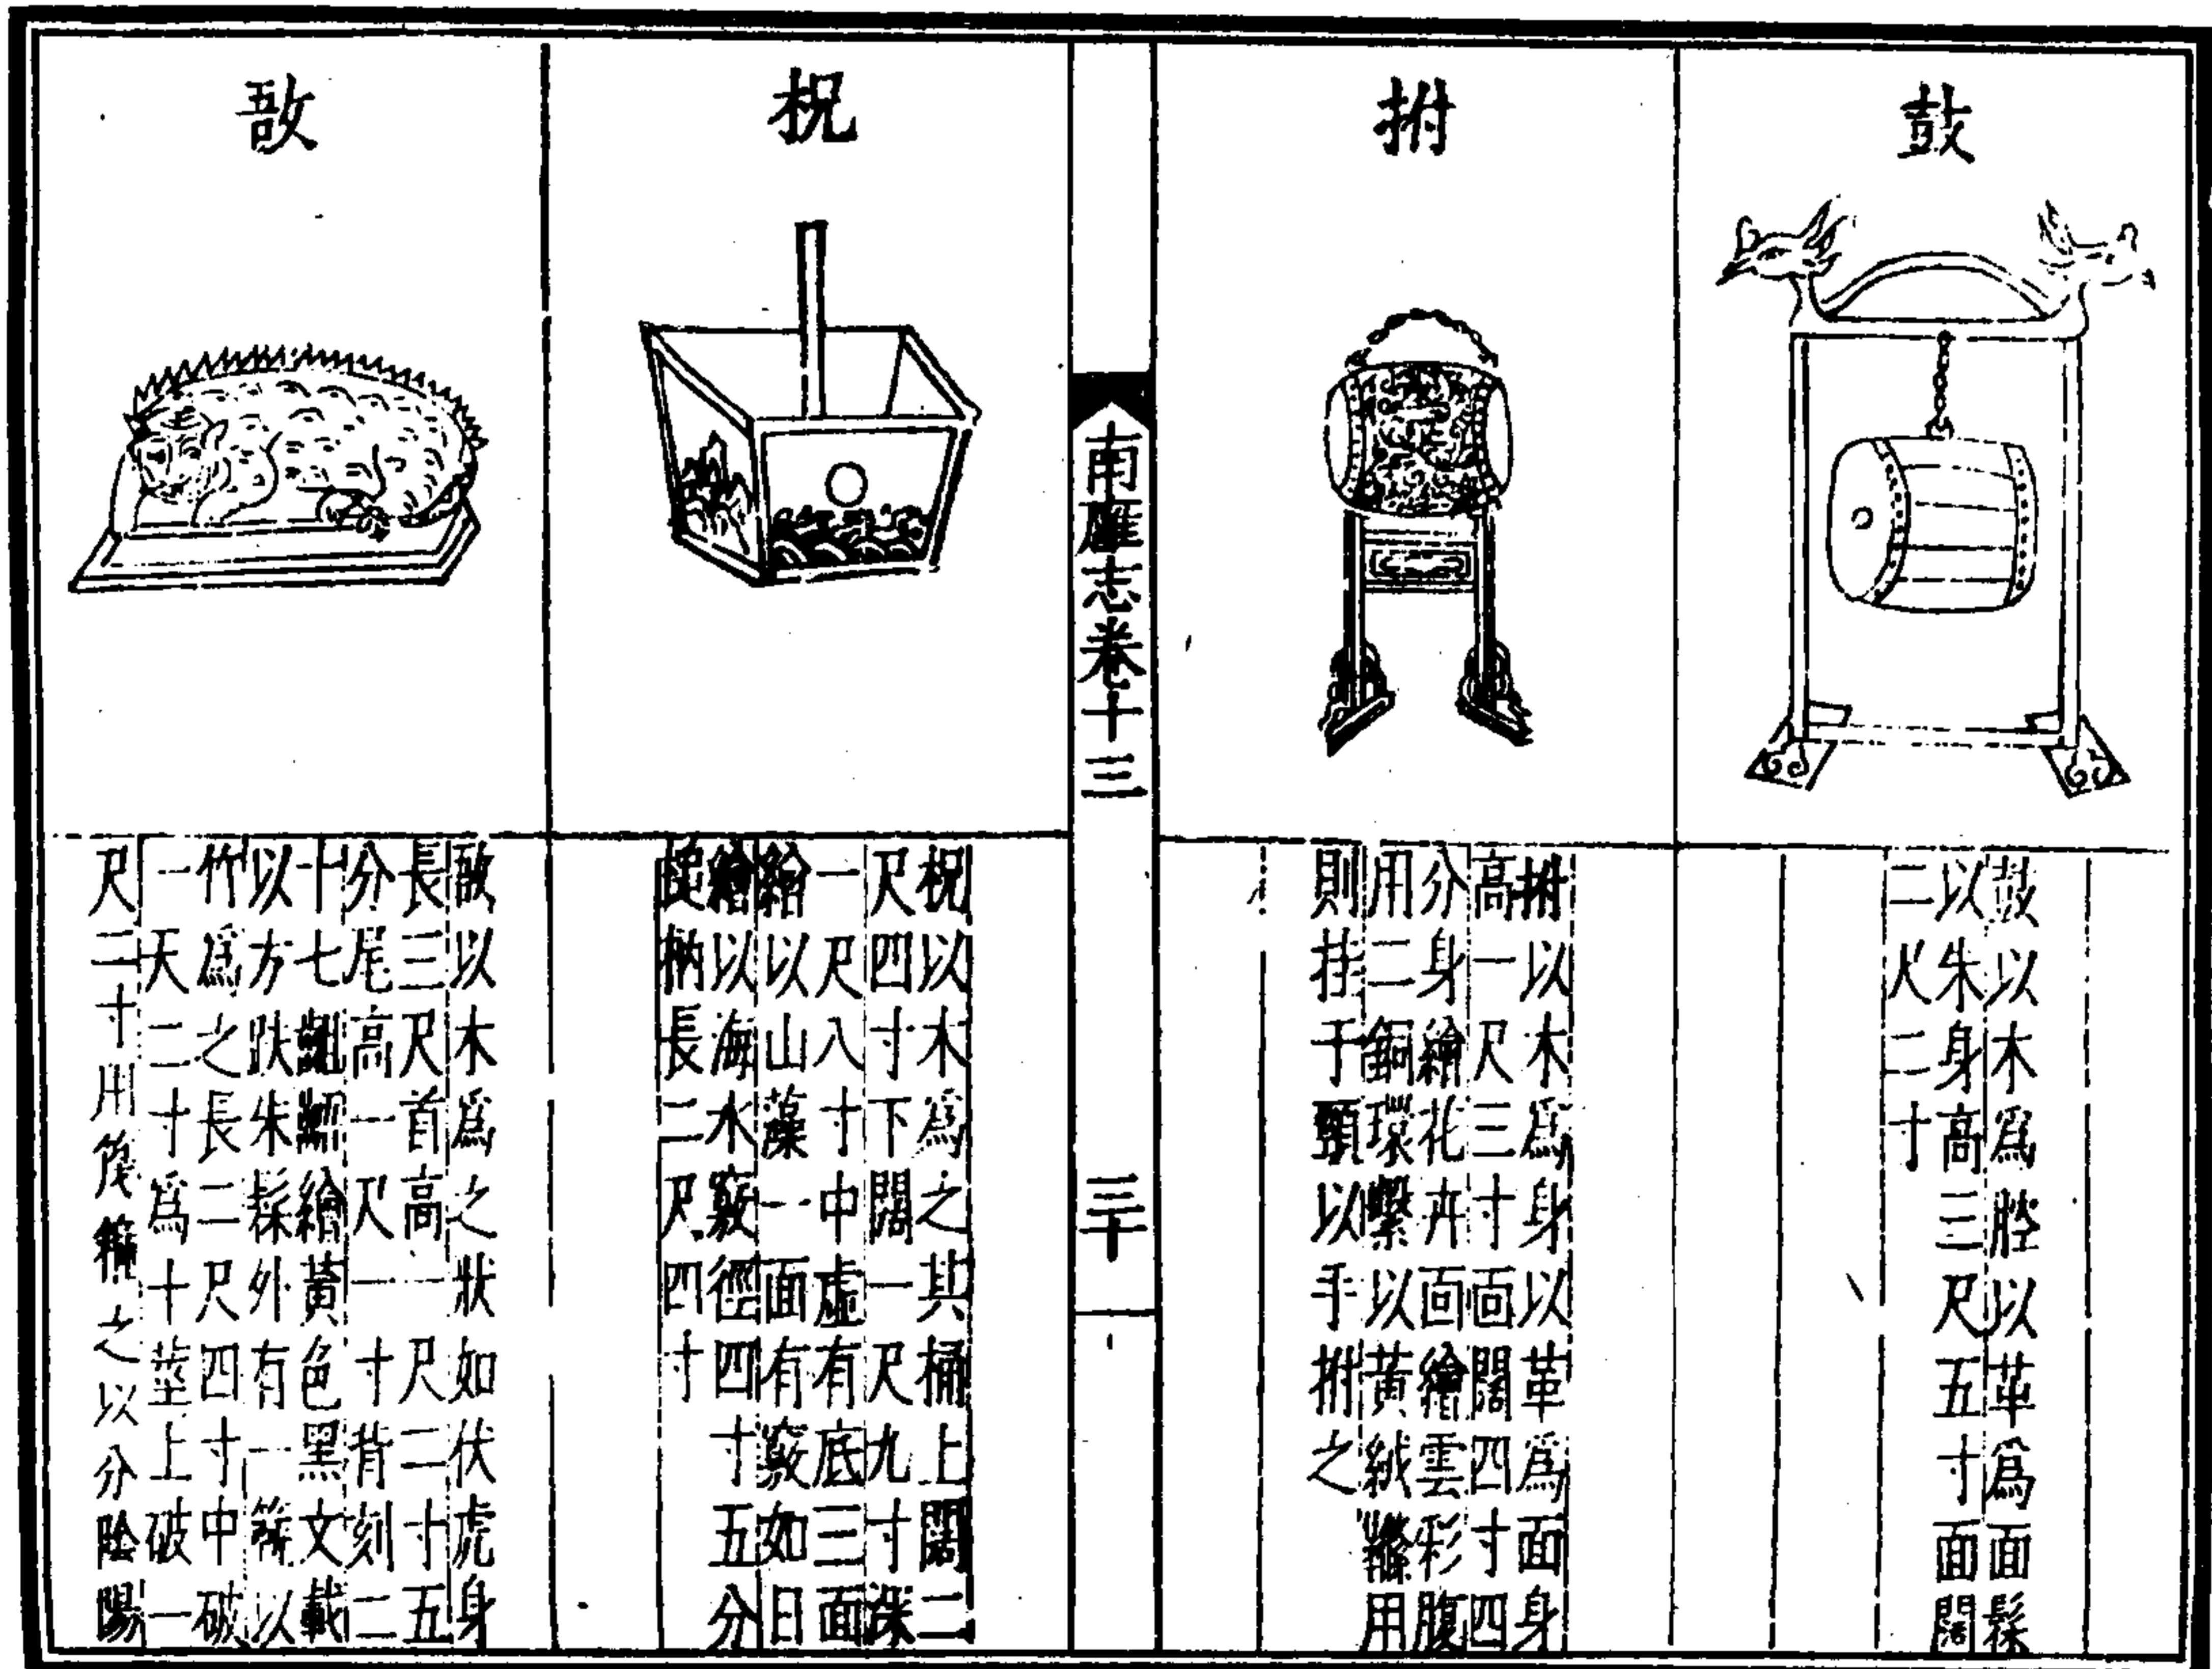 鼓
鼓以木爲腔以革爲面髹
以朱身高三尺五寸面闊
二尺二寸
拊
拊以木爲身以革爲面身
高一尺三寸面闊四寸四
分身繪花卉面繪雲彩腹
用二銅環繫以黃絨縧用
則挂于頸以手拊之
南廱志卷十三
三十
柷
柷以木爲之其桶上闊二
尺四寸下闊一尺九寸深
一尺八寸中虛有底三面
繪以山藻一面有竅如日
繪以海水竅徑四寸五分
柄長二尺四寸
敔
敔以木爲之狀如伏虎身
長三尺首高一尺二寸五
分尾高一尺一寸背刻二
十七齟齬繪黃色黑文載
以方趺朱髹外有一籈以
竹爲之長二尺四寸中破
一天二寸爲十莖上破一
尺二寸用後籈之以分陰陽